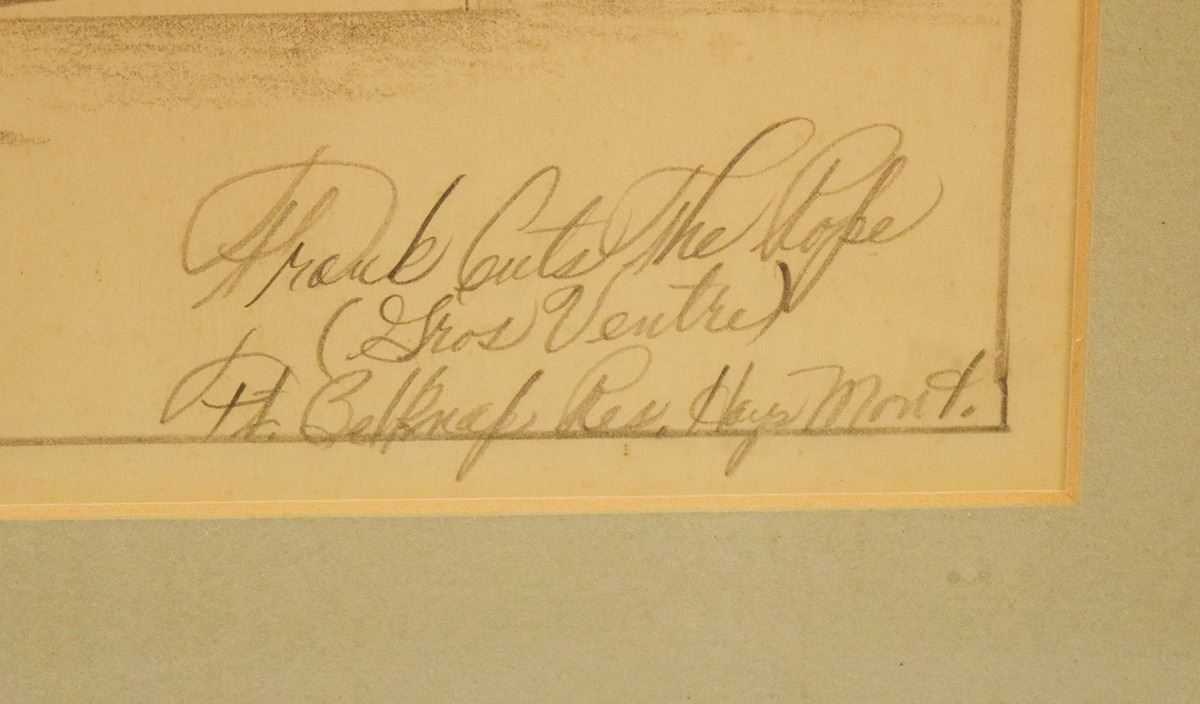 Frank Cuts The Rope
(Gros Ventre)
Ft. Belknap Res. Hays Mont.